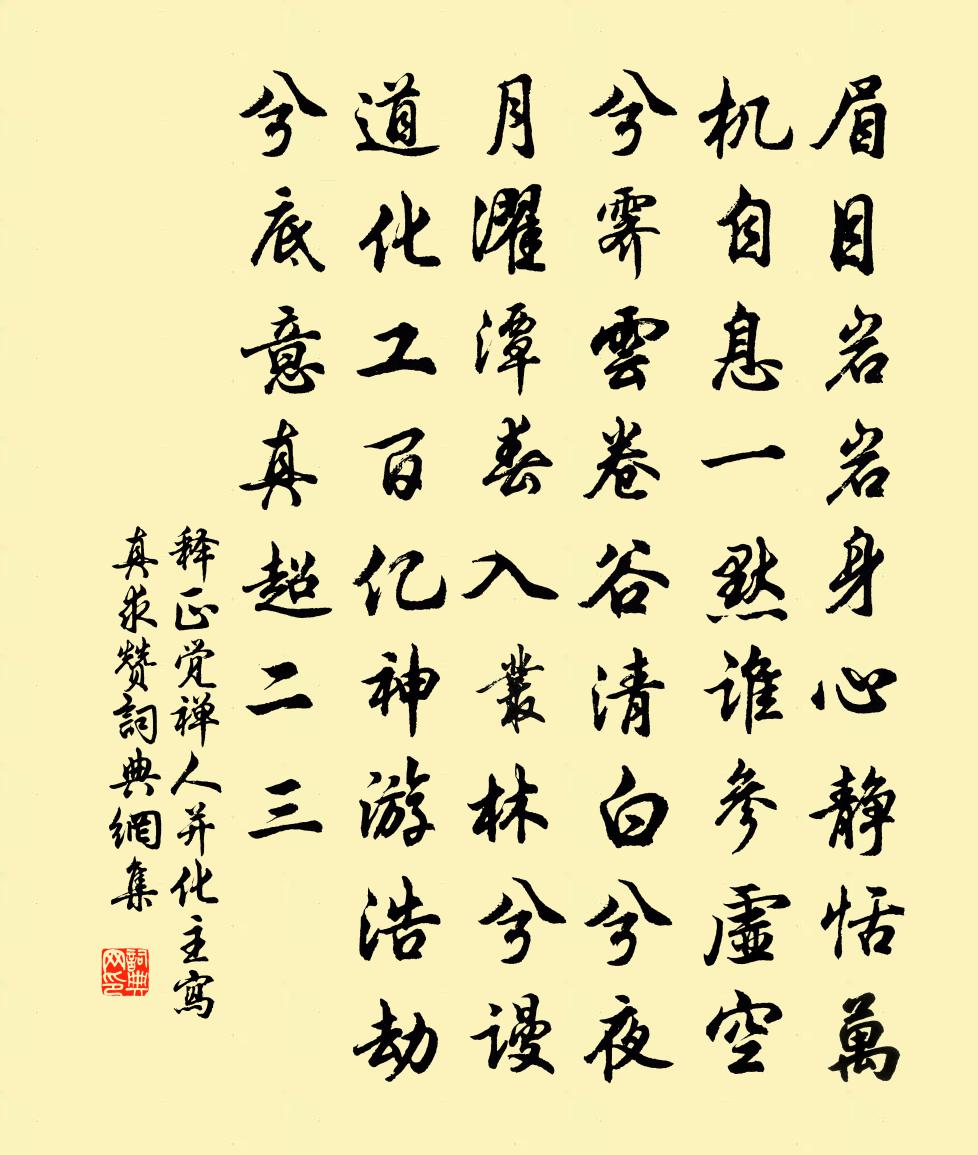 眉目岩岩身心静恬萬
机自息一默谁參虚空
兮霽雲卷谷清白兮夜
月濯潭春入叢林兮谩
道化工百亿神游浩劫
兮底意真超二三
释正觉禅人并化主寫
真求赞詞典網集
詞典网印